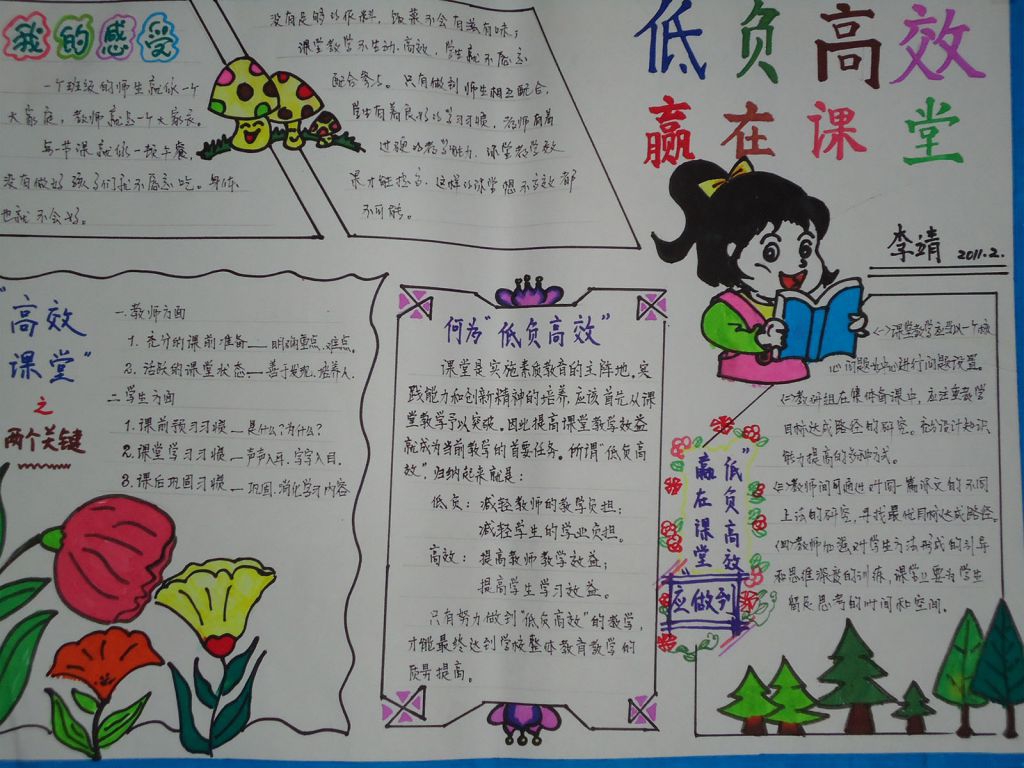 低负高效
赢在课堂
李靖 2011.2.
我的感受
一个班级的师生就似一个
大家庭，教师就是一个大家长。
每一节课就似一顿午餐，
没有做好孩子们就不愿意吃。身体
也就不会好。
没有足够的作料，饭菜不会有滋有味；
课堂教学不生动、高效，学生就不愿意
配合参与。只有做到师生相互配合，
学生有着良好的学习习惯，老师有着
过硬的教学能力，课堂教学效
果才能提高，这样的课堂想不高效都
不可能。
"高效
课堂"
之
两个关键
一.教师方面
1.充分的课前准备——明确重点、难点。
2.活跃的课堂状态——善于发现、培养人.
二.学生方面
1.课前预习习惯——是什么？为什么？
2.课堂学习习惯——声声入耳，字字入目.
3.课后巩固习惯——巩固、消化学习内容
何为"低负高效"
课堂是实施素质教育的主阵地。实
践能力和创新精神的培养，应该首先从课
堂教学予以突破。因此提高课堂教学效益
就成为当前教学的首要任务。所谓"低负高
效"，归纳起来就是：
低负：减轻教师的教学负担；
减轻学生的学业负担。
高效：提高教师教学效益；
提高学生学习效益。
只有努力做到"低负高效"的教学，
才能最终达到学校整体教育教学的
质量提高。
"低负高效
赢在课堂"
应做到
㈠课堂教学应当以一个核
心问题为中心进行问题设置。
㈡教研组在集体备课中，应注重教学
目标达成路径的研究。充分设计知识
能力提高的多种方式。
㈢教师间可通过对同一篇课文的不同
上法的研究，寻找最优目标达成路径。
㈣教师加强对学生方法形成的引导
和思维深度的训练，课堂上要为学生
留足思考的时间和空间。